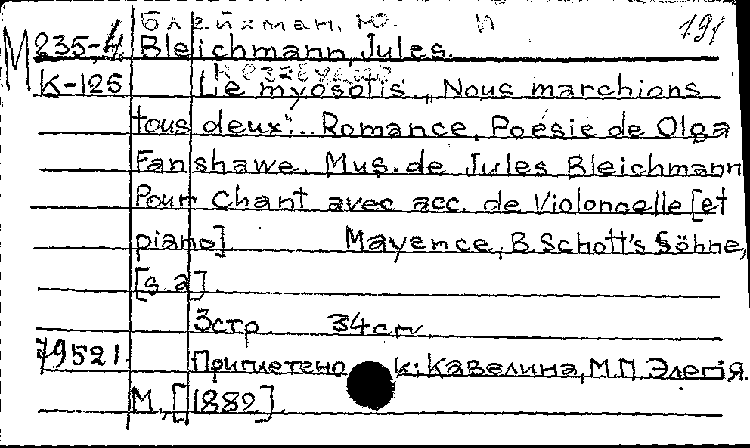 Блейхман, Ю. И 191
М 235-4 Bleichmann, Jules.
K-125 Le myosotis. „Nous marchions
tous deux“... Romance. Poésie de Olga
Fanshawe. Mus. de Jules Bleichmann
Pour Chant avec acc. de Violoncelle [et
piano]. Mayence, B. Schott's Söhne,
[s.a].
3 стр. 34 cm.
79521. Приплетено к: Кавелина, М.П. Элегiя.
М., [1882].